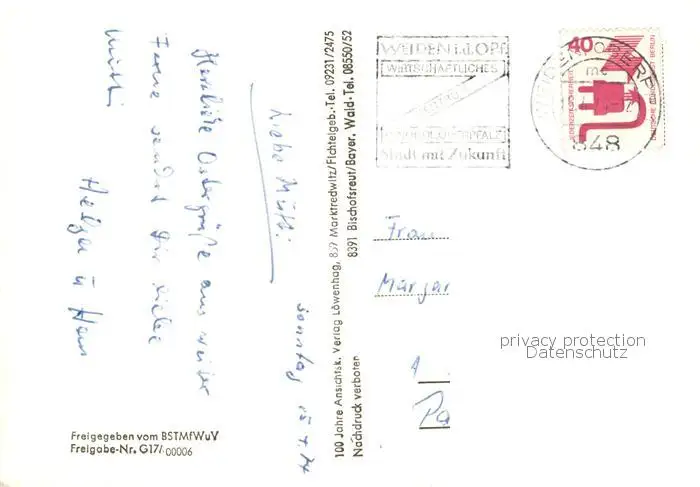 Liebe Mutti!
Sonntag
Herzliche Ostergrüße aus weiter
Ferne sendet Dir liebe
Mutti
Helga u Hans
Freigegeben vom BSTMfWuV
Freigabe-Nr. G17/ 00006
100 Jahre Ansichtsk. Verlag Löwenhag, 859 Marktredwitz/Fichtelgeb.·Tel. 09231/2475
8391 Bischofsreut/Bayer. Wald·Tel. 08550/52
Nachdruck verboten
WEIDEN I.d.OPf
WIRTSCHAFTLICHES
Stadt mit Zukunft
40
JEDERZEIT SICHERHEIT
DEUTSCHE BUNDESPOST BERLIN
848
Frau
Margar
1
Pa
privacy protection
Datenschutz